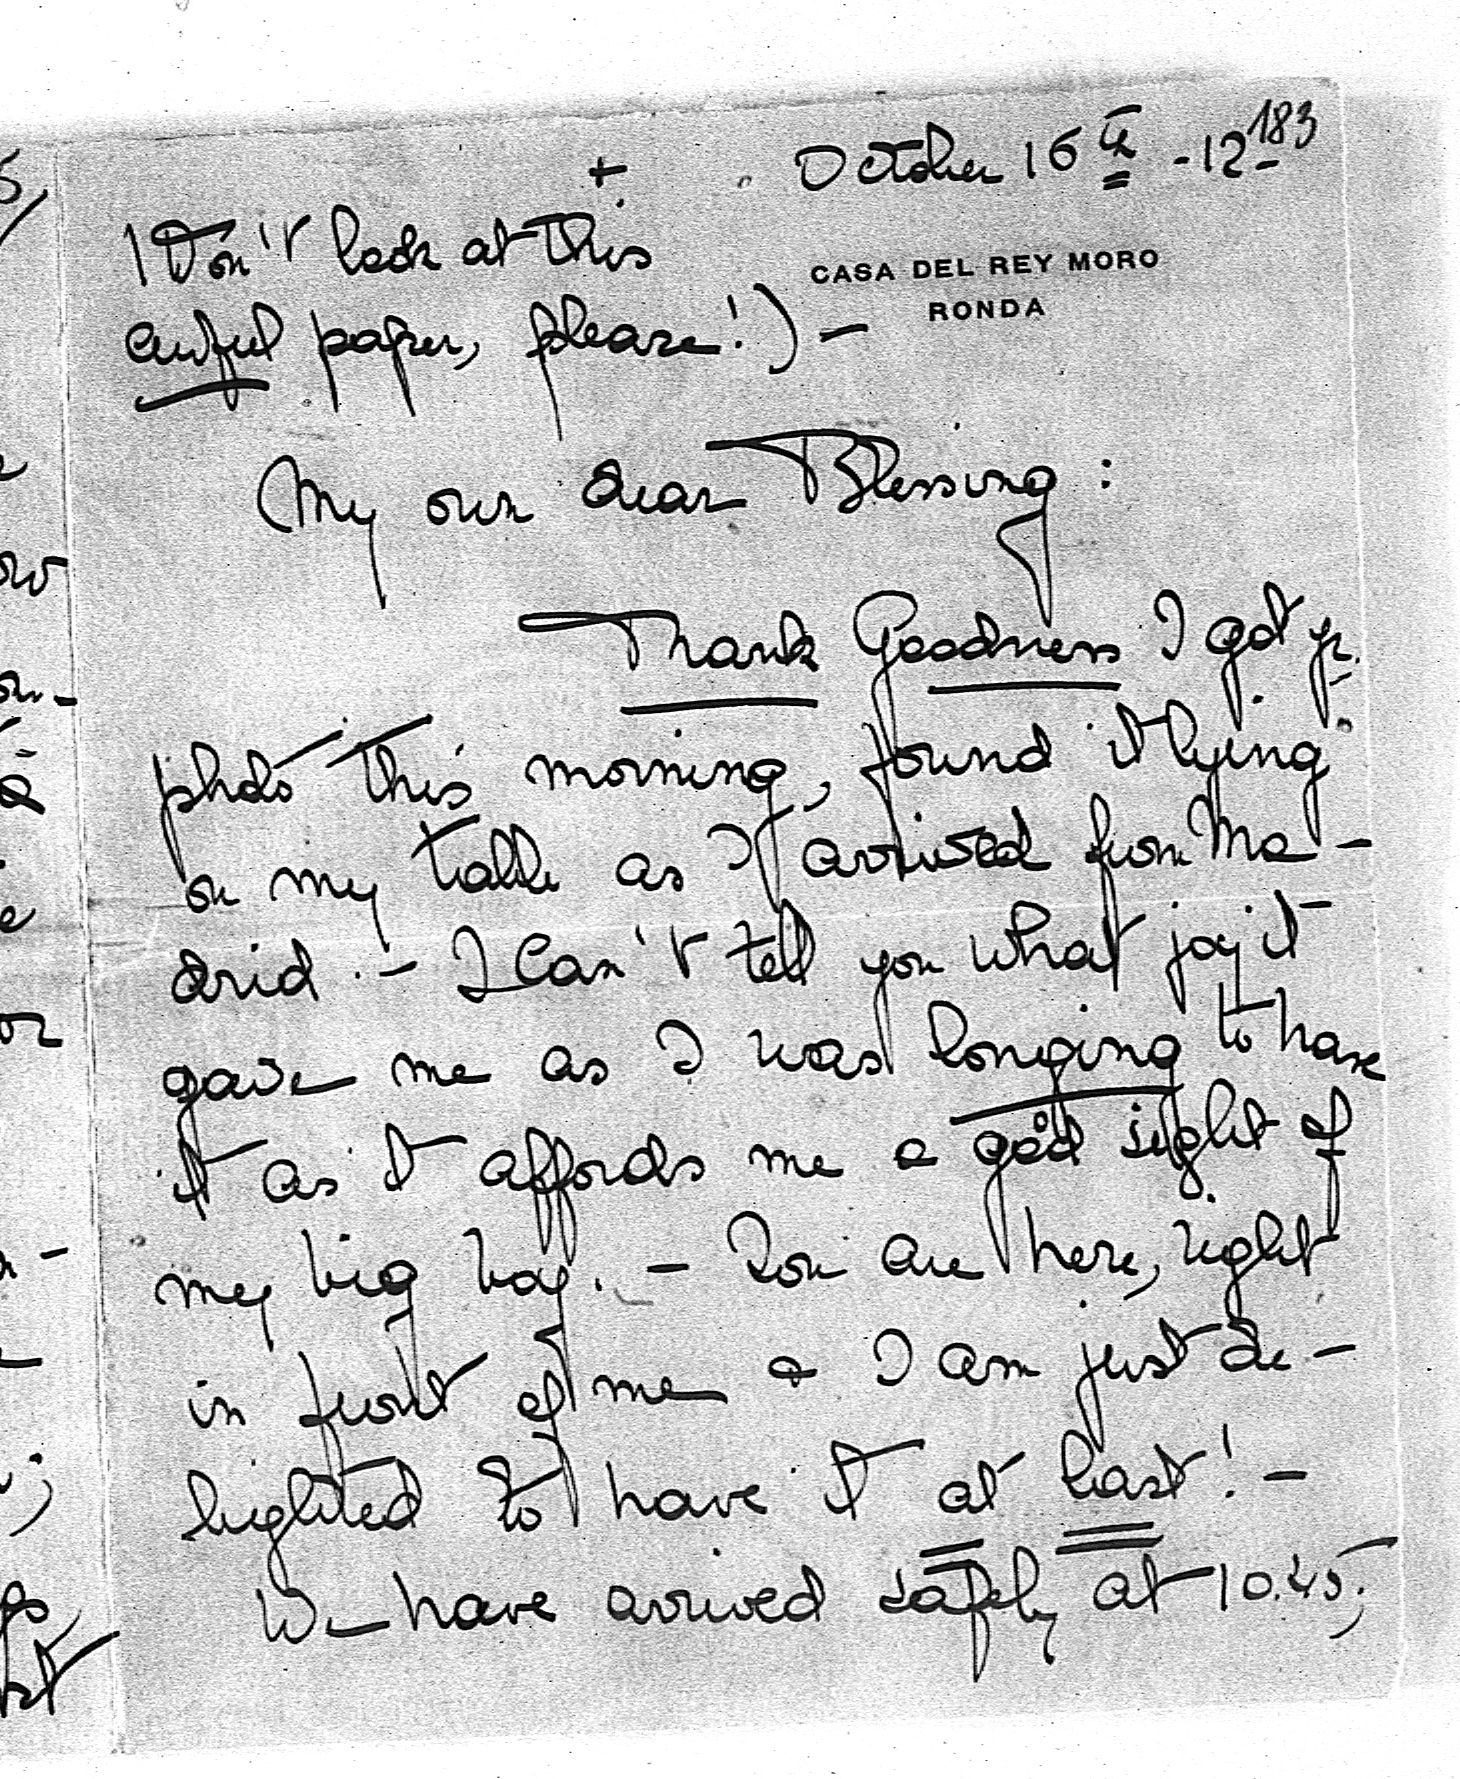 +
October 16th -12- 183
(Don't look at this
CASA DEL REY MORO
RONDA
awful paper, please!) -
My own dear Blessing:
Thank Goodness I got yr.
photo this morning, found it lying
on my table as I arrived from Ma-
drid. - I can't tell you what joy it
gave me as I was longing to have
it as it affords me a good sight of
my big boy. - You are here, right
in front of me & I am just de-
lighted to have it at last! -
We have arrived safely at 10.45,